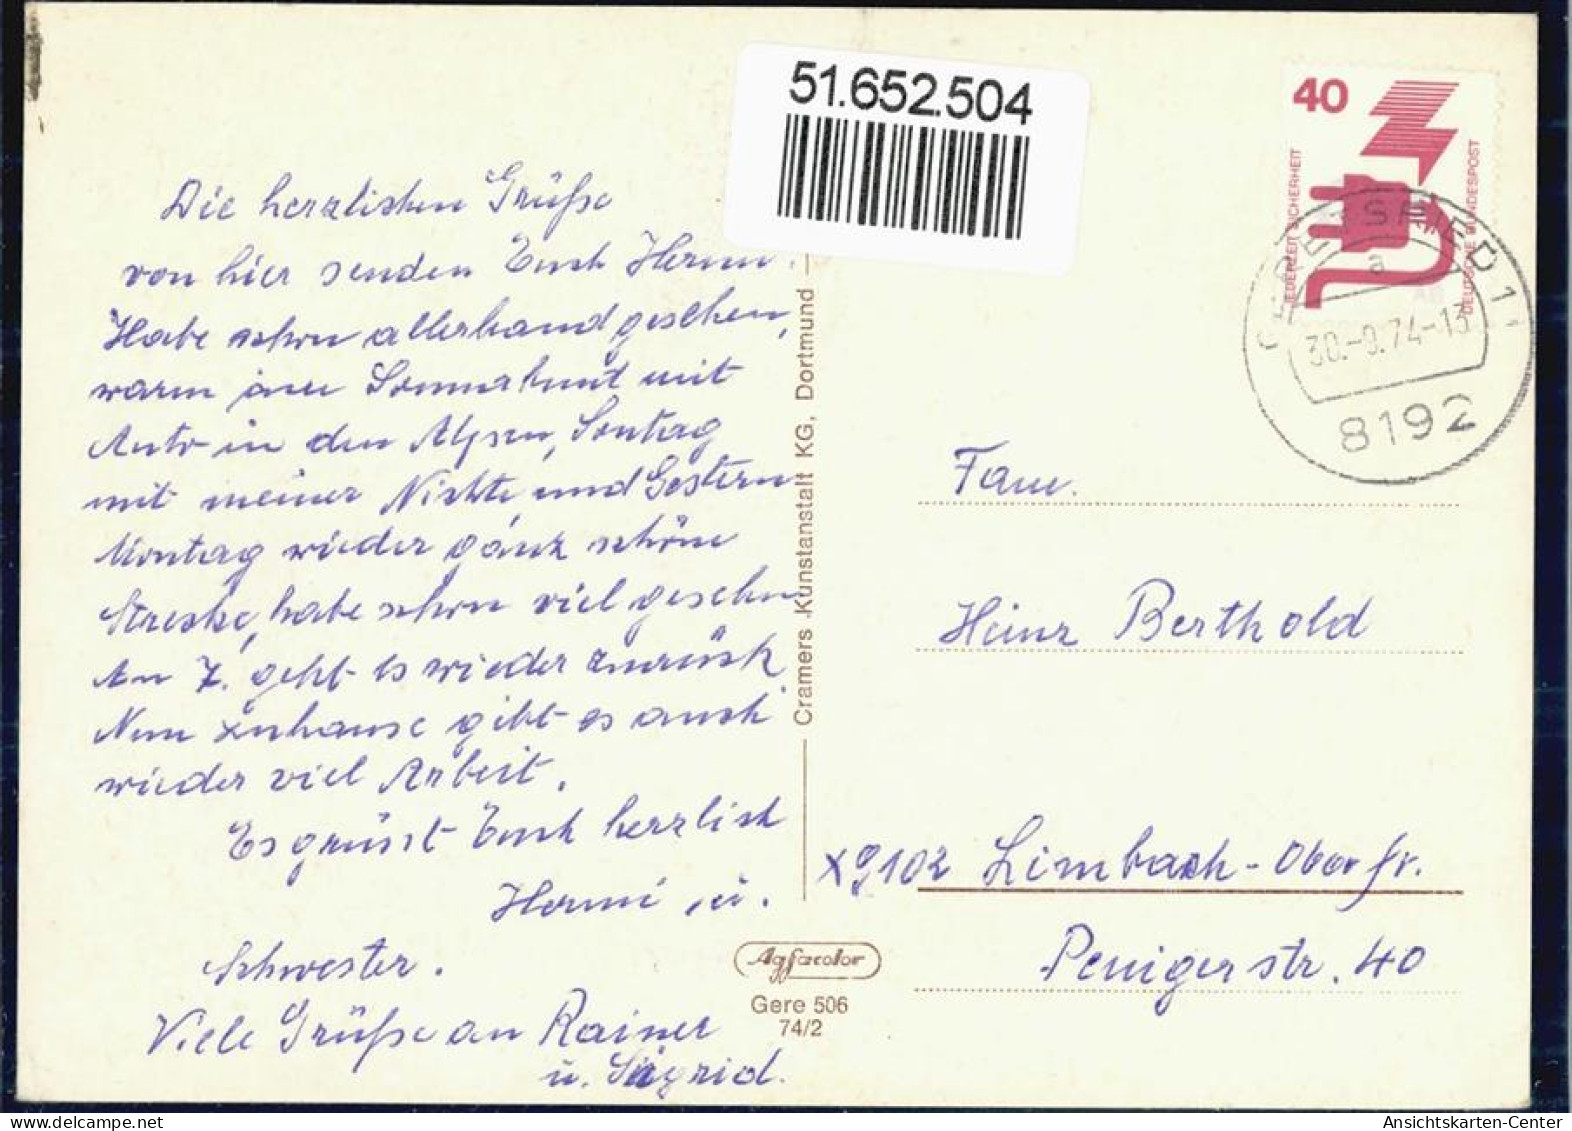 51.652.504
40
JEDERZEIT SICHERHEIT
DEUTSCHE BUNDESPOST
GERETSRIED 1
a
30.-9.74-13
8192
Die herzlichen Grüße
von hier senden Euch Hermi.
Habe schon allerhand gesehen,
waren Sonnabend mit
Auto in den Alpen, Sontag
mit meiner Nichte, und Gestern
Montag wieder ganz schöne
Strecke, habe schon viel gesehn
Am 7. geht es wieder zurück
Nun zuhause gibt es auch
wieder viel Arbeit.
Es grüsst Euch herzlich
Hermi u.
Schwester.
Viele Grüße an Rainer
u. Sigrid.
Cramers Kunstanstalt KG, Dortmund
Agfacolor
Gere 506
74/2
Fam.
Heinz Berthold
X9102 Limbach-Oberfr.
Penigerstr. 40
Ansichtskarten-Center